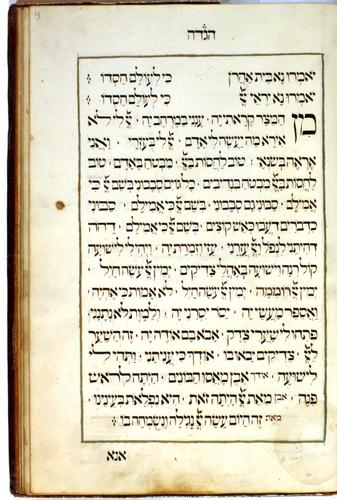 הגדה
יאמרו נא בית אהרן כי לעולם חסדו :
יאמרו נא יראי יי כי לעולם חסדו :
מן המצר קראתי יה · ענני במרחב יה · יי לי לא
אירא מה יעשה לי אדם · יי לי בעוזרי · ואני
אראה בשנאי · טוב לחסות ביי מבטח באדם · טוב
לחסות ביי מבטח בנדיבים · כל גוים סבבוני בשם יי כי
אמילם · סבוני גם סבבוני · בשם יי כי אמילם · סבוני
כדברים דעכו כאש קוצים · בשם יי כי אמילם · דחה
דחיתני לנפל ויי עזרני · עזי וזמרת יה · ויהי לי לישועה
קול רנה וישועה באהלי צדיקים · ימין יי עשה חיל ·
ימין יי רוממה · ימין יי עשה חיל · לא אמות כי אחיה
ואספר מעשי יה · יסר יסרני יה · ולמות לא נתנני
פתחו לי שערי צדק · אבא בם אודה יה · זה השער
ליי · צדיקים יבאו בו · אודך כי עניתני · ותהי לי
לישועה · אודך אבן מאסו הבונים · היתה לראש
פנה · אבן מאת יי היתה זאת · היא נפלאת בעינינו ·
מאת זה היום עשה יי נגילה ונשמחה בו :
אנא